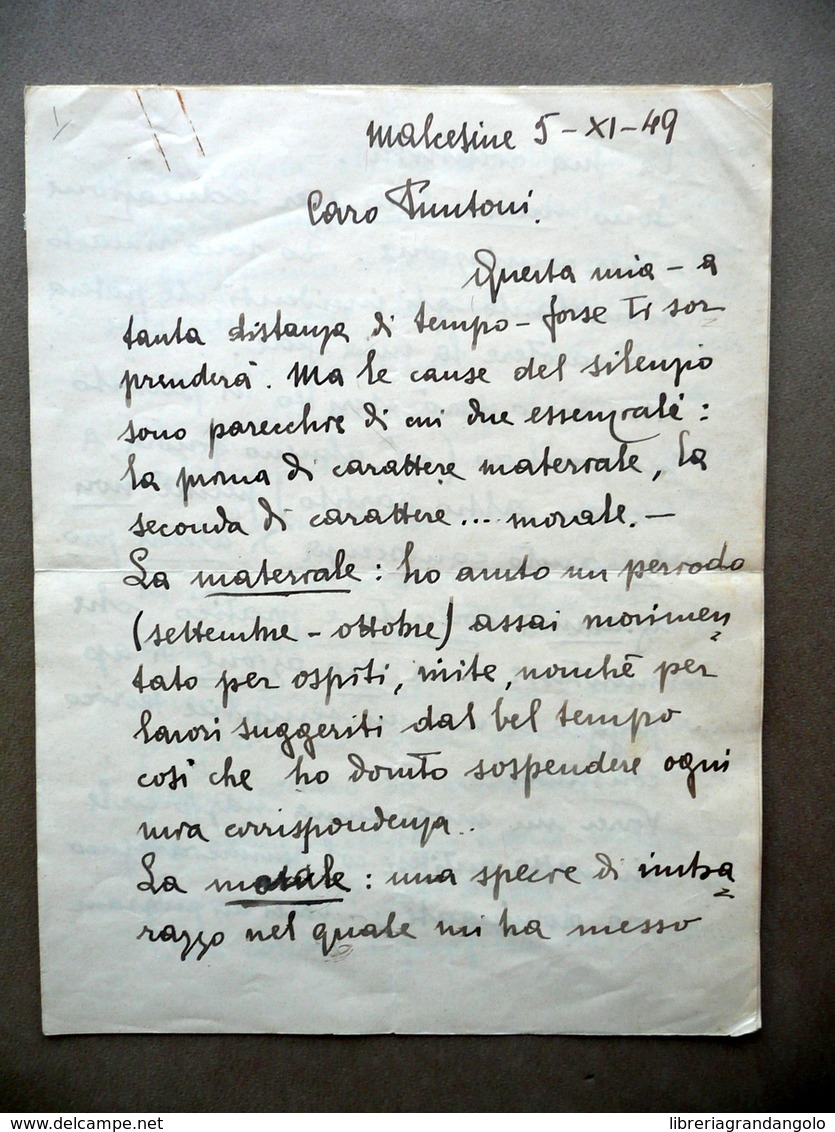 1
Malcesine 5-XI-49
Caro Puntoni.
Questa mia - a
tanta distanza di tempo - forse Ti sor
prenderà. Ma le cause del silenzio
sono parecchie di cui due essenziali:
la prima di carattere materiale, la
seconda di carattere... morale. -
La materiale: ho avuto un periodo
(settembre - ottobre) assai movimen
tato per ospiti, visite, nonché per
lavori suggeriti dal bel tempo
così che ho dovuto sospendere ogni
mia corrispondenza..
La morale: una specie di imba
razzo nel quale mi ha messo
delcampe.net
libreriagrandangolo